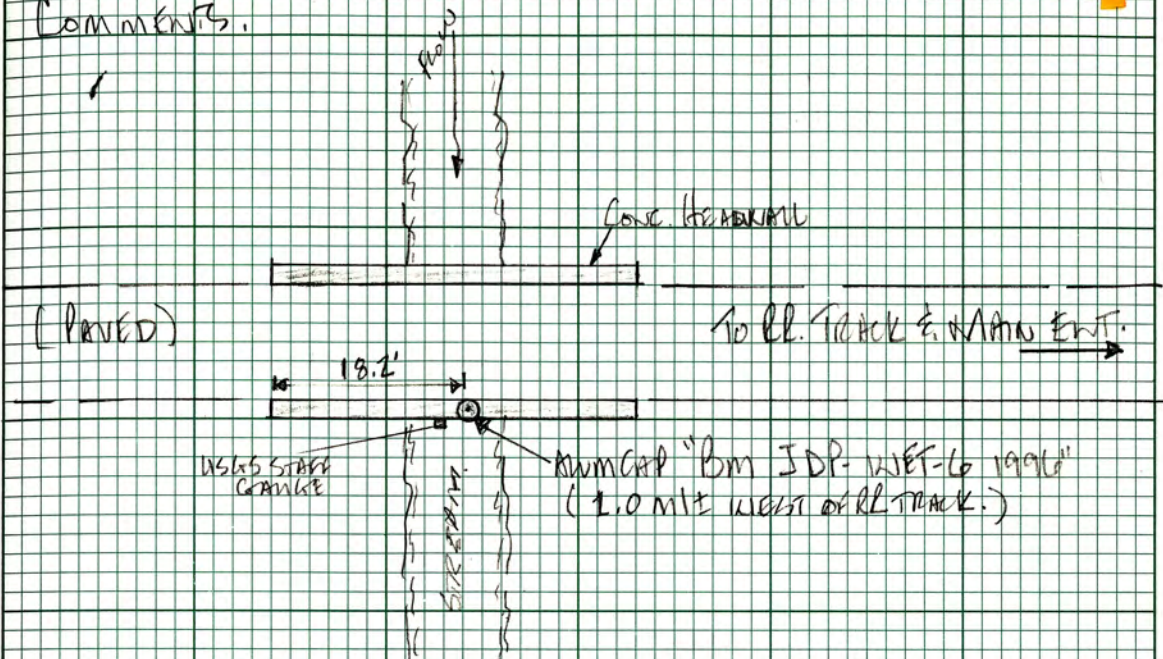 COMMENTS.
FLOW
CONC. HEADWALL
(PAVED)
TO RR. TRACK & MAIN ENT.
18.2'
USGS STAFF
GAUGE
ALUM CAP "BM JDP-WET-6 1996"
(1.0 MI± WEST OF RR TRACK.)
STREAM